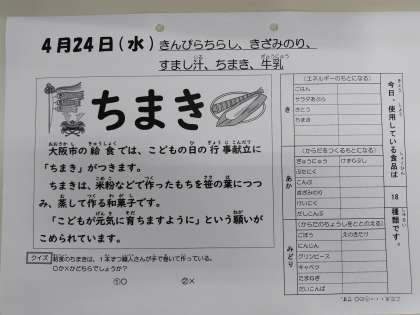 4月24日(水) きんぴらちらし、きざみのり、
すまし汁、ちまき、牛乳
ちまき
大阪市の給食では、こどもの日の行事献立に
「ちまき」がつきます。
ちまきは、米粉などで作ったもちを笹の葉につつ
み、蒸して作る和菓子です。
「こどもが元気に育ちますように」という願いが
こめられています。
クイズ 給食のちまきは、1本ずつ職人さんが手で巻いて作っている。
○か×かどちらでしょうか?
①○ ②×
今日、使用している食品は
18
種類です。
き
(エネルギーのもとになる)
ごはん
サラダあぶら
さとう
ちまき
あか
(からだをつくるもとになる)
ぎゅうにゅう けずりぶし
ぶたにく
こんぶ
きざみのり
けいにく
だしこんぶ
みどり
(からだのちょうしをととのえる)
ごぼう えのきたけ
にんじん
グリンピース
キャベツ
たまねぎ
だいこんば